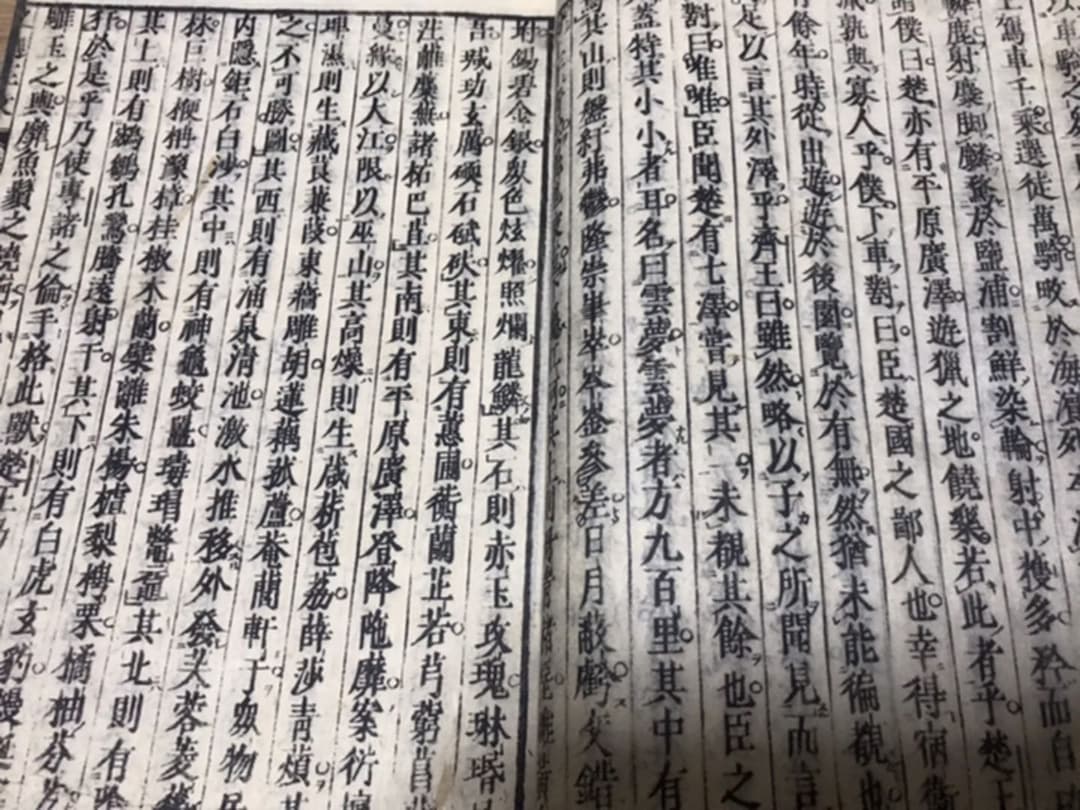 車騎之衆
王駕車千乘選徒萬騎畋於海濱列卒滿
麟鹿射麋脚麟騖於鹽浦割鮮染輪射中獲多矜而自
謂僕曰楚亦有平原廣澤遊獵之地饒樂若此者乎楚
孰與寡人乎僕下車對曰臣楚國之鄙人也幸得宿衛
有餘年時從出遊遊於後園覽於有無然猶未能徧覩也
足以言其外澤乎齊王曰雖然略以子之所聞見而言
對曰唯唯臣聞楚有七澤嘗見其一未覩其餘也臣之
蓋特其小小者耳名曰雲夢雲夢者方九百里其中有
其山則盤紆岪鬱隆崇峍崒岑崟參差日月蔽虧交錯
坿錫碧金銀衆色炫燿照爛龍鱗其石則赤玉玫瑰琳珉
瑊功玄厲碝石碔砆其東則有蕙圃衡蘭芷若芎藭菖
茳蘺蘪蕪諸柘巴苴其南則有平原廣澤登降陁靡案衍
曼緣以大江限以巫山其高燥則生葴菥苞荔薛莎青薠
埤濕則生藏莨蒹葭東蘠雕胡蓮藕菰蘆菴䕡軒于衆物
之不可勝圖其西則有涌泉清池激水推移外發芙蓉菱
內隱鉅石白沙其中則有神龜蛟鼉瑇瑁鼈黿其北則有
林巨樹楩柟豫章桂椒木蘭檗離朱楊樝梨梬栗橘柚芬
其上則有鵷鶵孔鸞騰遠射干其下則有白虎玄豹蟃蜒
於是乎乃使專諸之倫手格此獸楚王乃
雕玉之輿靡魚鬚之橈